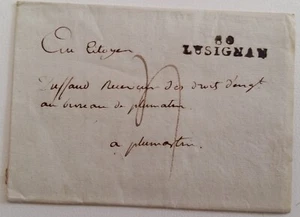 80
LUSIGNAN
Citoyen
Receveur des droits d'engt
au bureau de plumartin
a plumartin